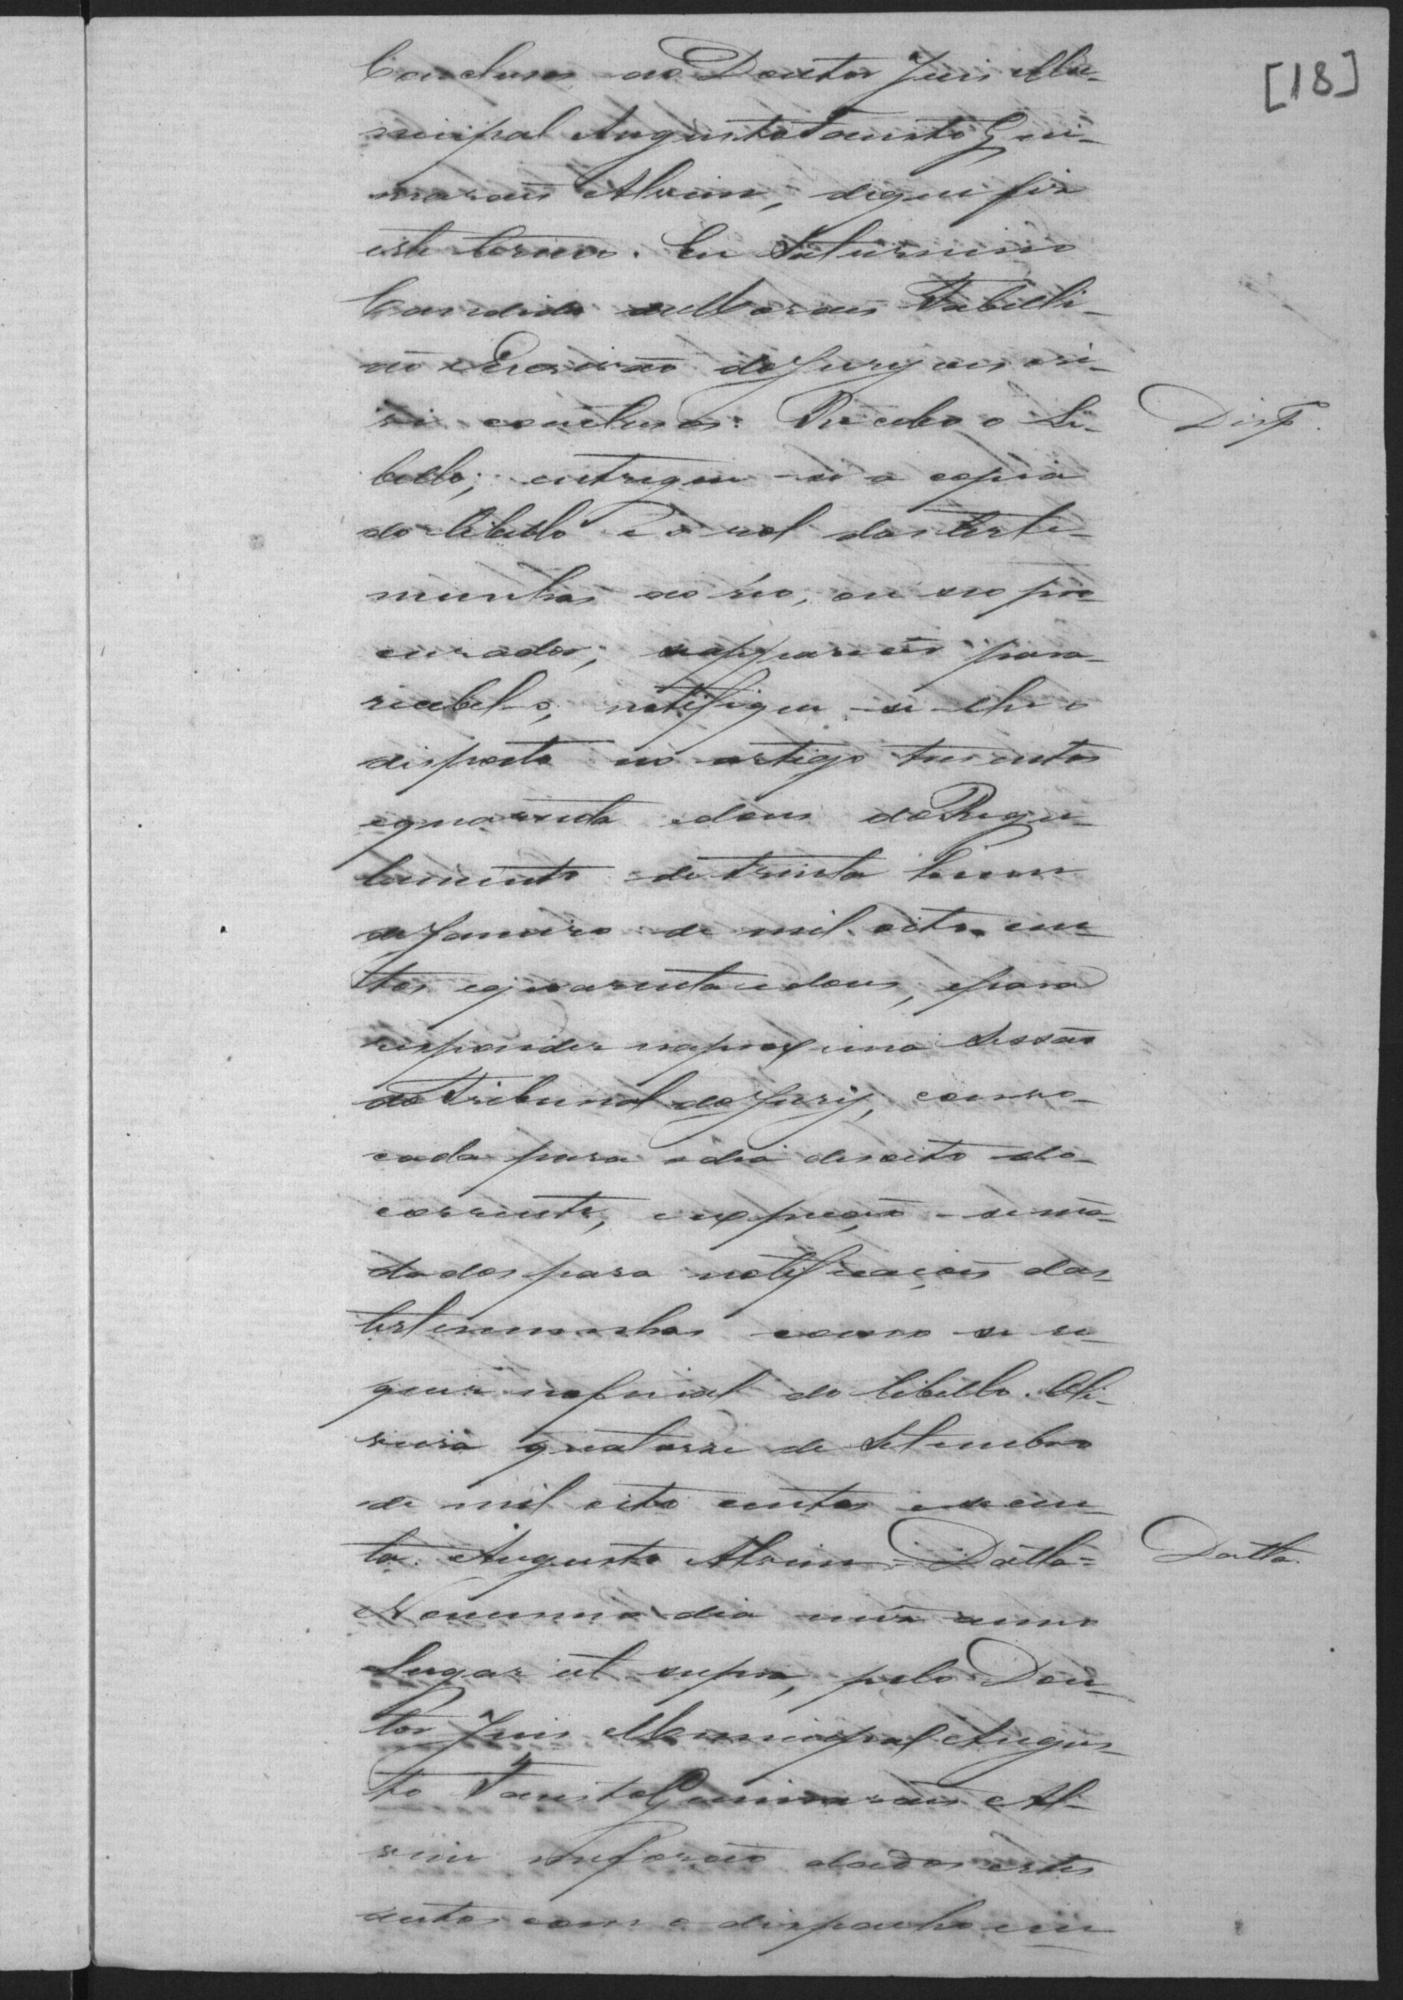 [18]
Conclusos ao Doutor Juis Mu-
nicipal Augusto Fausto Gui-
maraes Alvim, de que fiz
este termo. Eu Saturnino
Candido de Moraes Tabelli-
ão Escrivão do Jury
conclusos. Recebo o Li- Desp.
bello; entregue-se a copia
do libello e o rol das teste-
munhas ao réo, ou seo pro-
curador; para
recebel-o, notifique-se-lhe o
disposto no artigo tresentos
e quarenta e dous do Regu-
lamento de trinta e hum
de Janeiro de mil oito cen-
tos e quarenta e dous, e para
responder na proxima Sessão
do Tribunal do Jury, convo-
cada para o dia desoito do
corrente, e expeção-se mã-
dados para notificação das
testemunhas como se re-
quer no final do libello. Oli-
veira quatorze de Setembro
de mil oito centos e secen-
ta. Augusto Alvim. Datta= Datta.
No mesmo dia mez anno
Lugar ut supra, pelo Dou-
tor Juis Municipal Augus-
to Fausto Guimaraes Al-
vim me forão dados estes
autos com o despacho em